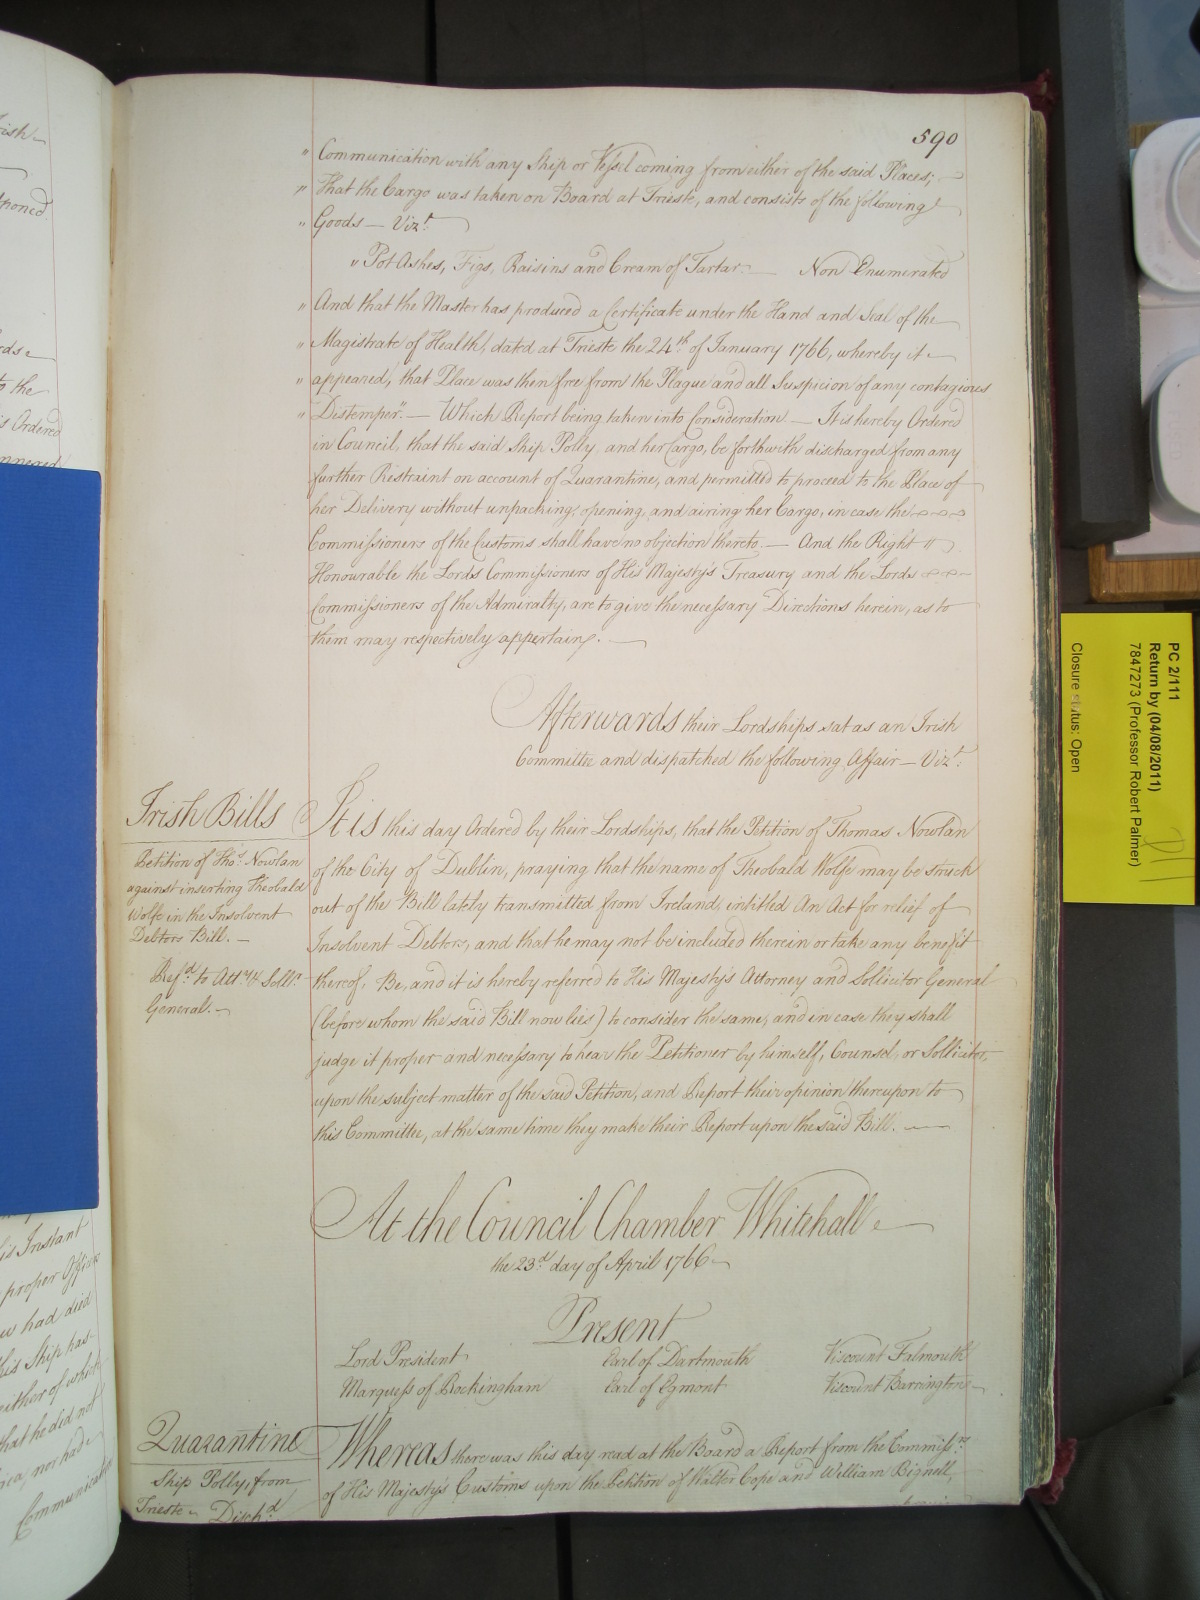 590
" Communication with any Ship or Vessel coming from either of the said Places;
" That the Cargo was taken on Board at Trieste, and consists of the following
" Goods — Vizt.
" Pot Ashes, Figs, Raisins and Cream of Tartar. — Non Enumerated
" And that the Master has produced a Certificate under the Hand and Seal of the
" Magistrate of Health, dated at Trieste the 24th. of January 1766, whereby it
" appeared, that Place was then free from the Plague and all Suspicion of any contagious
" Distemper". — Which Report being taken into Consideration — It is hereby Ordered
in Council, that the said Ship Polly, and her Cargo, be forthwith discharged from any
further Restraint on account of Quarantine, and permitted to proceed to the Place of
her Delivery without unpacking, opening, and airing her Cargo, in case the
Commissioners of the Customs shall have no objection thereto. — And the Right
Honourable the Lords Commissioners of His Majesty's Treasury and the Lords
Commissioners of the Admiralty, are to give the necessary Directions herein, as to
them may respectively appertain. —
Afterwards their Lordships sat as an Irish
Committee and dispatched the following Affair — Vizt.
Irish Bills
Petition of Thos. Nowlan
against inserting Theobald
Wolfe in the Insolvent
Debtors Bill. —
Refd. to Atty. & Sollr.
General. —
It is this day Ordered by their Lordships, that the Petition of Thomas Nowlan
of the City of Dublin, praying that the name of Theobald Wolfe may be struck
out of the Bill lately transmitted from Ireland, intitled An Act for relief of
Insolvent Debtors, and that he may not be included therein or take any benefit
thereof, Be, and it is hereby referred to His Majesty's Attorney and Sollicitor General
(before whom the said Bill now lies) to consider the same, and in case they shall
judge it proper and necessary to hear the Petitioner by himself, Counsel, or Sollicitor,
upon the subject matter of the said Petition, and Report their opinion thereupon to
this Committee, at the same time they make their Report upon the said Bill. —
At the Council Chamber Whitehall
the 23d. day of April 1766
Present
Lord President Earl of Dartmouth Viscount Falmouth
Marquess of Rockingham Earl of Egmont Viscount Barrington
Quarantine
Ship Polly, from
Trieste Dischd.
Whereas there was this day read at the Board a Report from the Commissrs.
of His Majesty's Customs upon the Petition of Walter Cope and William Bignell,
PC 2/111
Return by (04/08/2011)
7847273 (Professor Robert Palmer)
Closure status: Open
the
is Ordered
is Instant
proper Officer
had died
his Ship has
either of which
that he did not
nor had
Communication